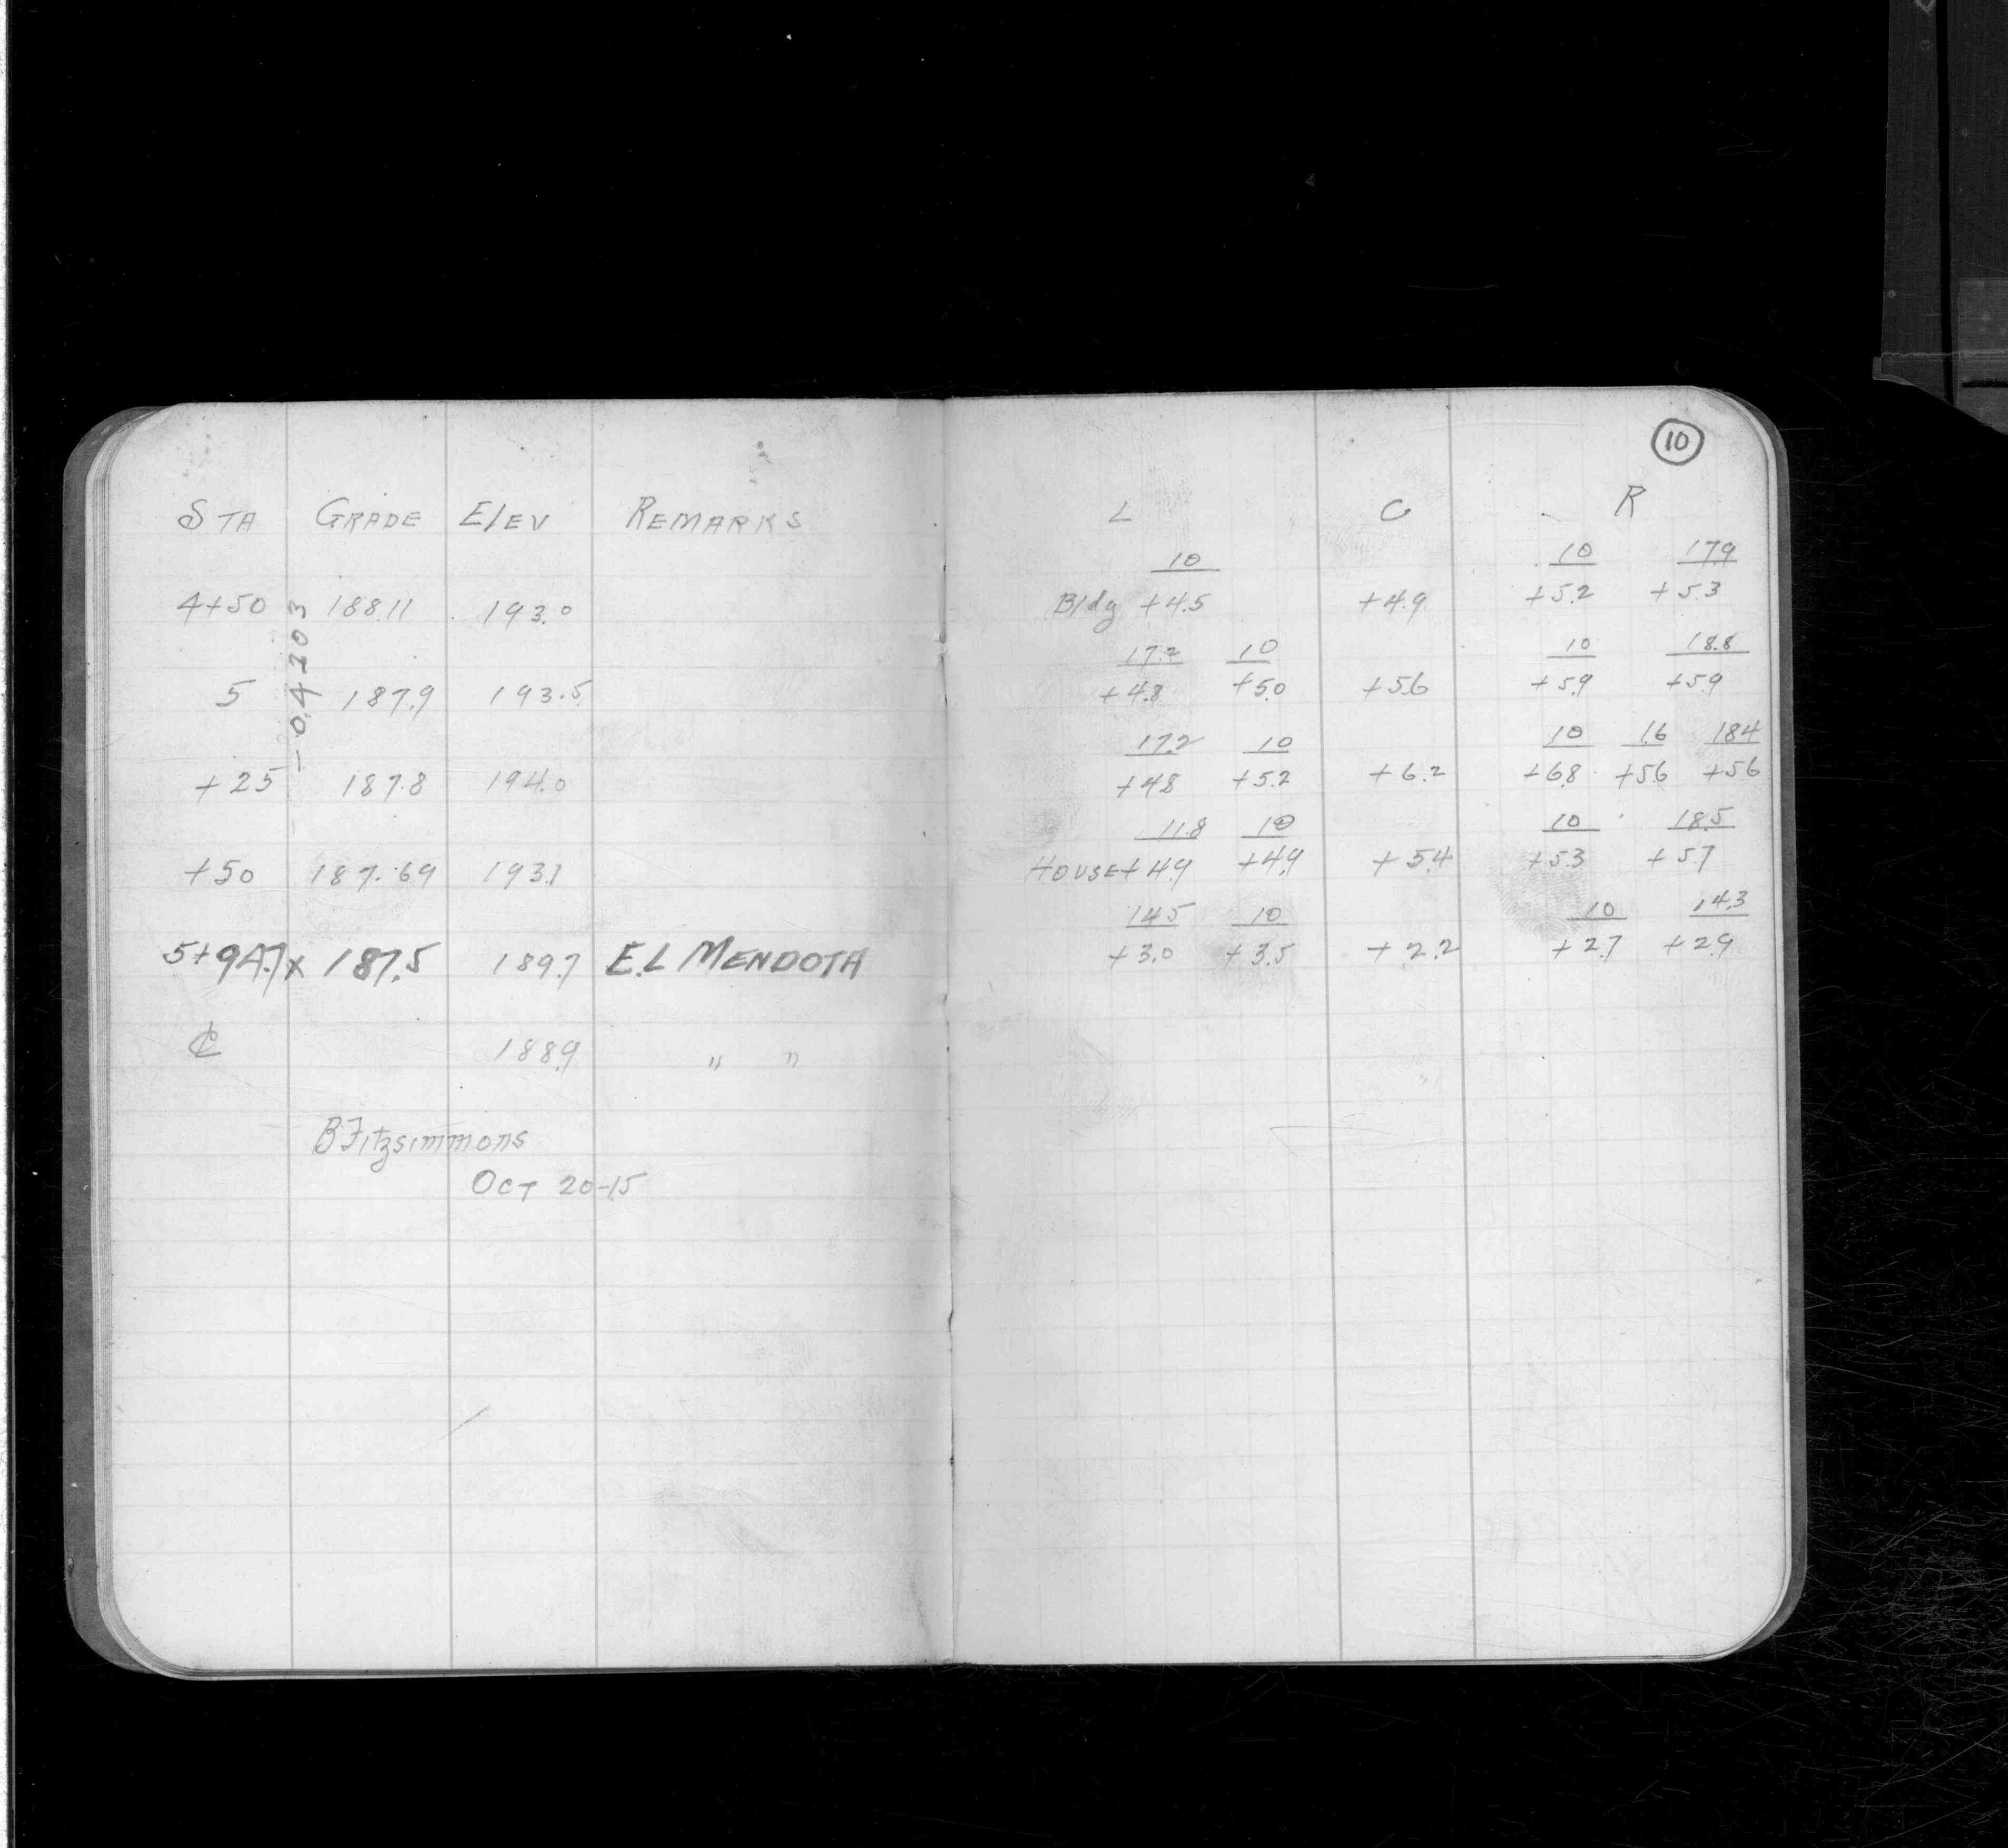 10
STA GRADE ELEV REMARKS L C R
10 10 17.9
4+50 188.11 193.0 Bldg +4.5 +4.9 +5.2 +5.3
-0.4203
17.2 10 10 18.8
5 187.9 193.5 +4.8 +5.0 +5.6 +5.9 +5.9
17.2 10 10 16 18.4
+25 187.8 194.0 +4.8 +5.2 +6.2 +6.8 +5.6 +5.6
11.8 10 10 18.5
+50 187.69 193.1 HOUSE +4.9 +4.9 +5.4 +5.3 +5.7
14.5 10 10 14.3
5+94.7 x 187.5 189.7 E.L MENDOTA +3.0 +3.5 +2.2 +2.7 +2.9
℄ 188.9 " "
B Fitzsimmons
OCT 20-15